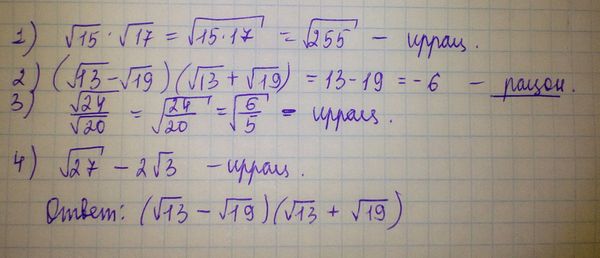 1) √15 · √17 = √15·17 = √255 – иррац.
2) (√13 – √19)(√13 + √19) = 13 – 19 = –6 – рацон.
3) √24/√20 = √24/20 = √6/5 – иррац.
4) √27 – 2√3 – иррац.
Ответ: (√13 – √19)(√13 + √19)